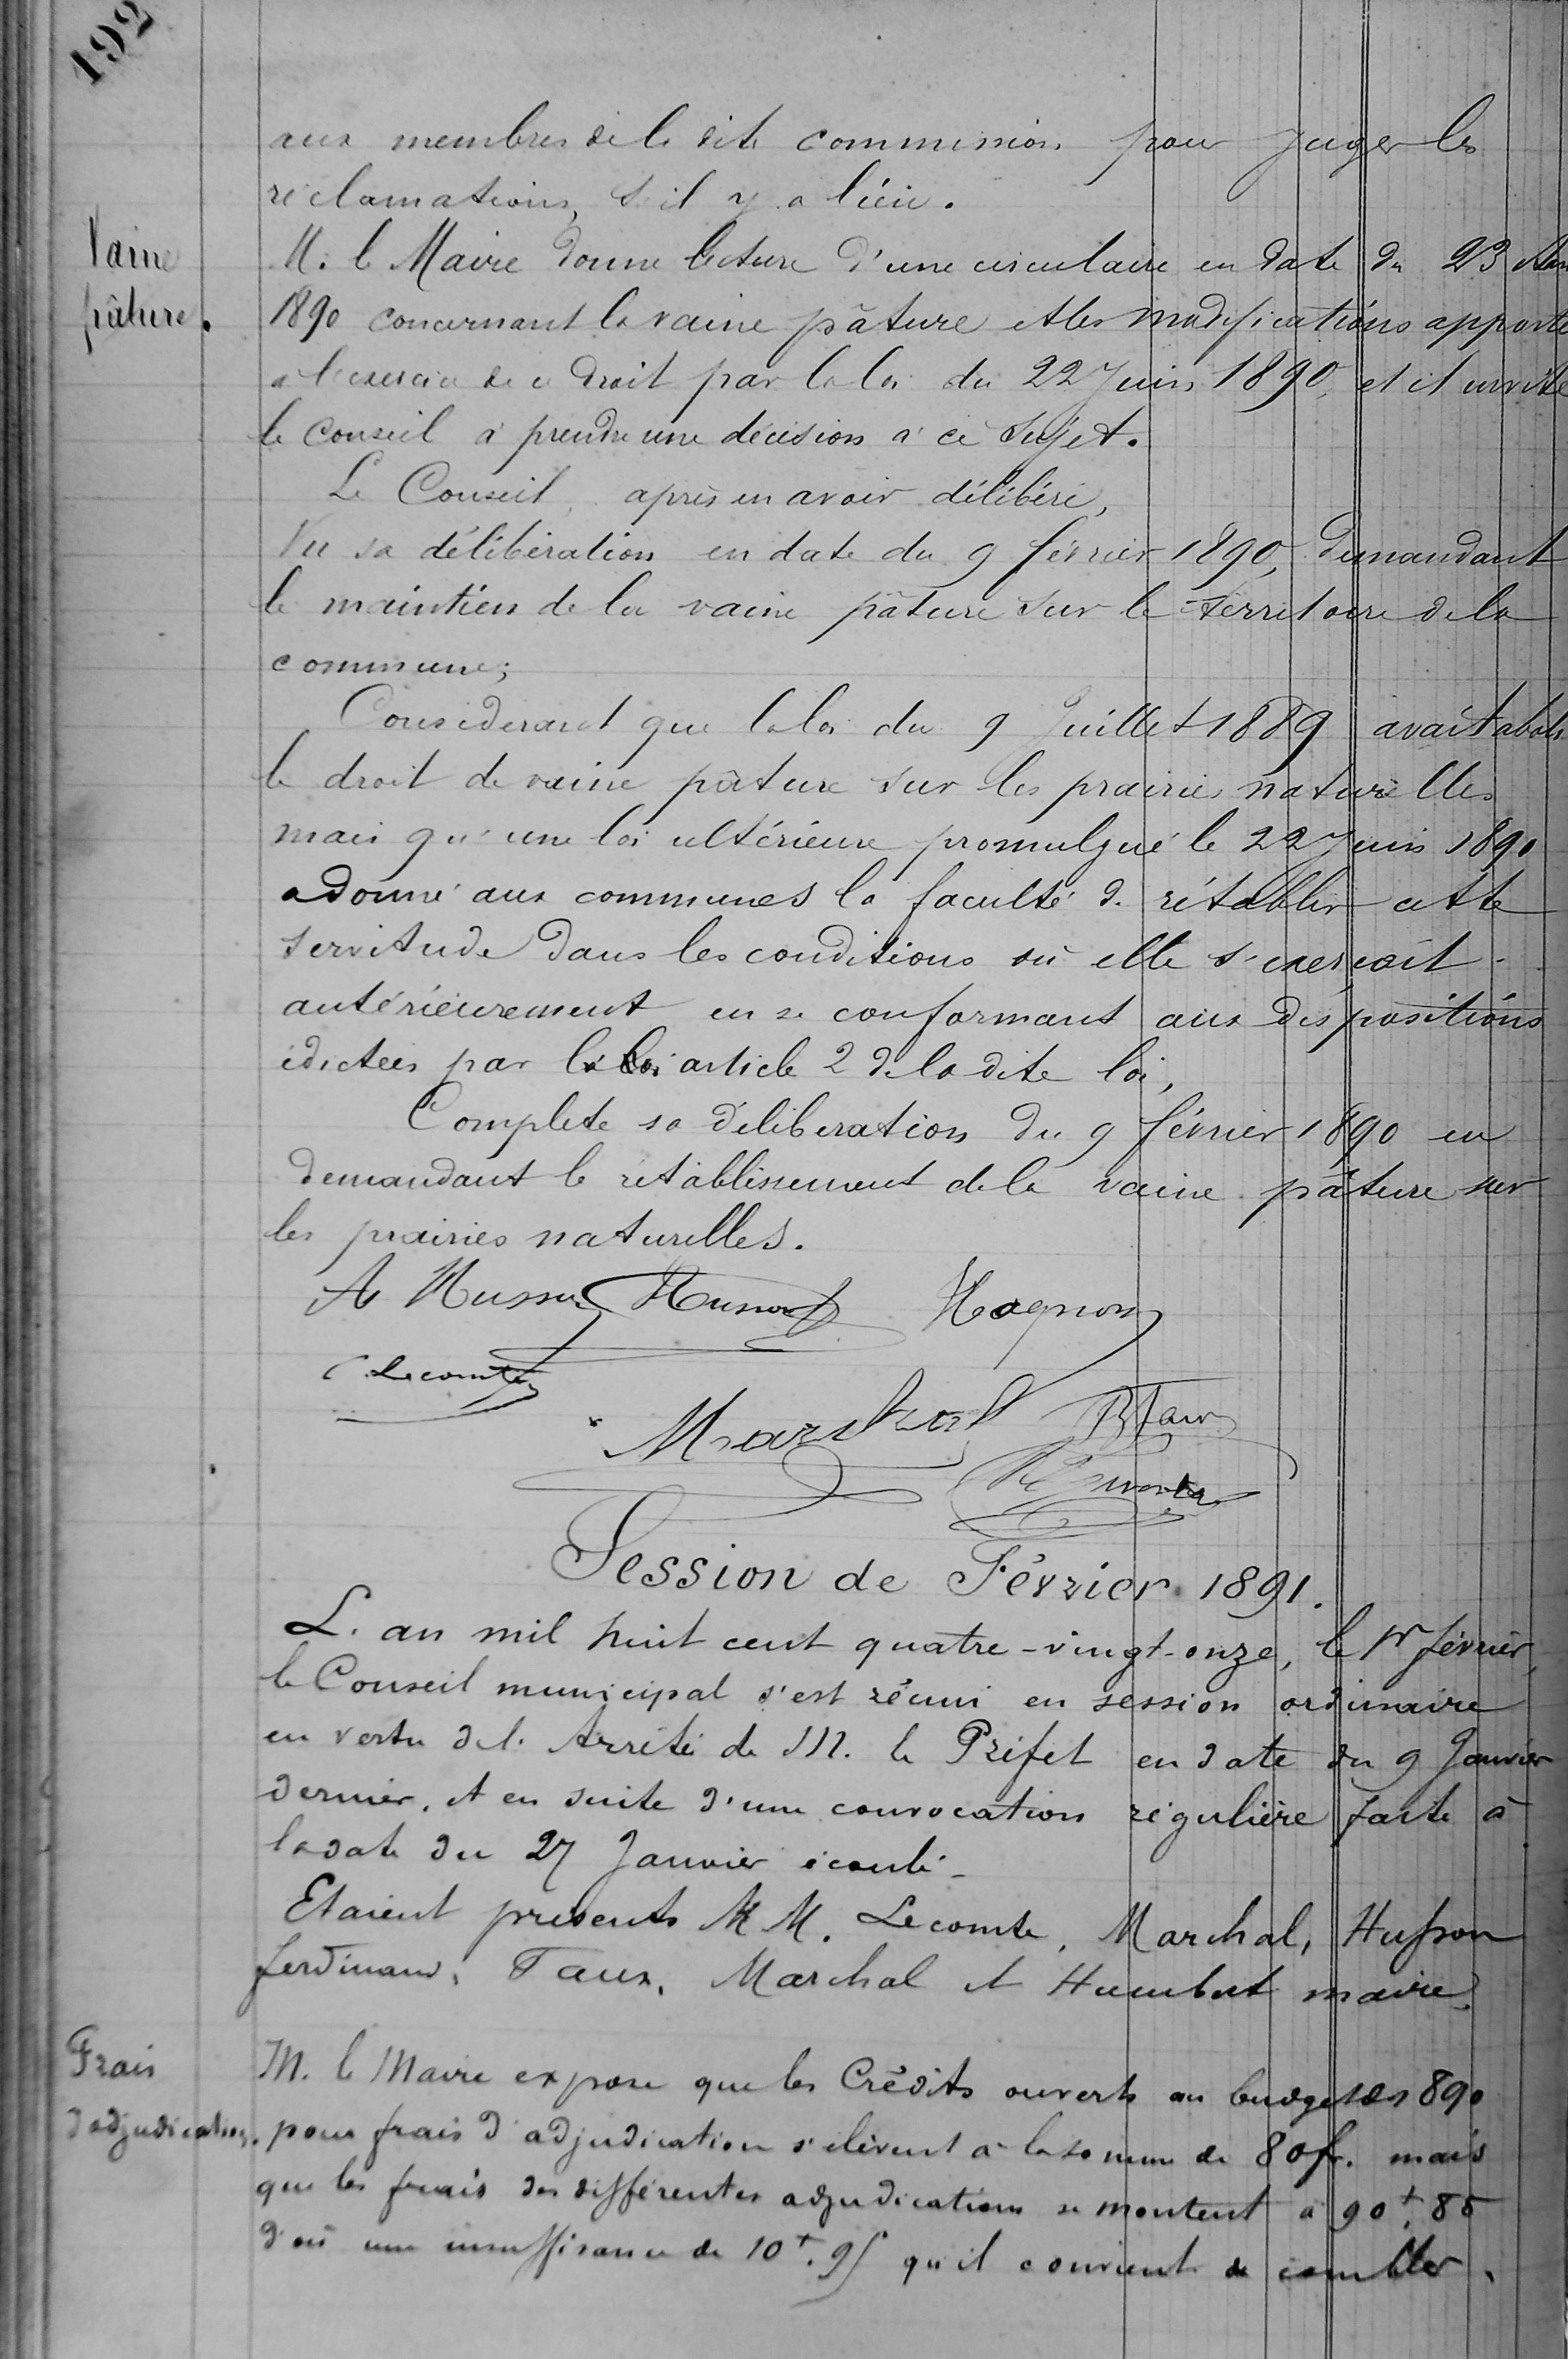 192
aux membres de la dite commission pour juger les
réclamations, s'il y a lieu.
Vaine
pâture.
M. le Maire donne lecture d'une circulaire en date du 23
1890 concernant la vaine pâture et les modifications apporte
a l'exercice de ce droit par la loi du 22 Juin 1890, et il invite
le Conseil à prendre une décision à ce sujet.
Le Conseil, après en avoir délibéré,
Vu sa délibération en date du 9 février 1890, demandant
le maintien de la vaine pâture sur le territoire de la
commune;
Considerant que la loi du 9 Juillet 1889 avait aboli
le droit de vaine pâture sur les prairies naturelles
mais qu'une loi ultérieure promulgué le 22 Juin 1890
a donné aux communes la faculté de rétablir cette
servitude dans les conditions où elle s'exerçait
antérieurement en se conformant aux dispositions
édictées par la loi article 2 de la dite loi,
Complete sa déliberation du 9 février 1890 en
demandant le rétablissement de la vaine pâture sur
les prairies naturelles.
A Husson Husson Hognon
C Lecomte
Marchal
Session de Février 1891.
L'an mil huit cent quatre-vingt-onze, le 1er février,
le Conseil municipal s'est réuni en session ordinaire
en vertu de l'Arrêté de M. le Préfet en date du 9 Janvier
dernier, et en suite d'une convocation régulière faite à
la date du 27 Janvier écoulé-
Etaient présents MM. Lecomte, Marchal, Husson
ferdinand, Taux, Marchal et Humbert maire.
Frais
d'adjudication.
M. le Maire expose que les Crédits ouverts au budget de 1890
pour frais d'adjudication s'élèvent à la somme de 80 fr. mais
que les frais des différentes adjudications se montent à 90f. 85
d'où une insuffisance de 10f. 95 qu'il convient de combler.